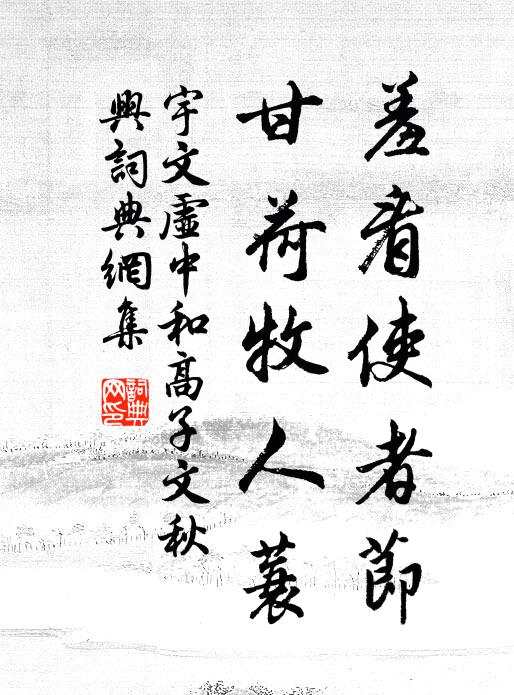 羞看使者節
甘荷牧人蓑
宇文虛中和高子文秋
興詞典網集
詞典网印